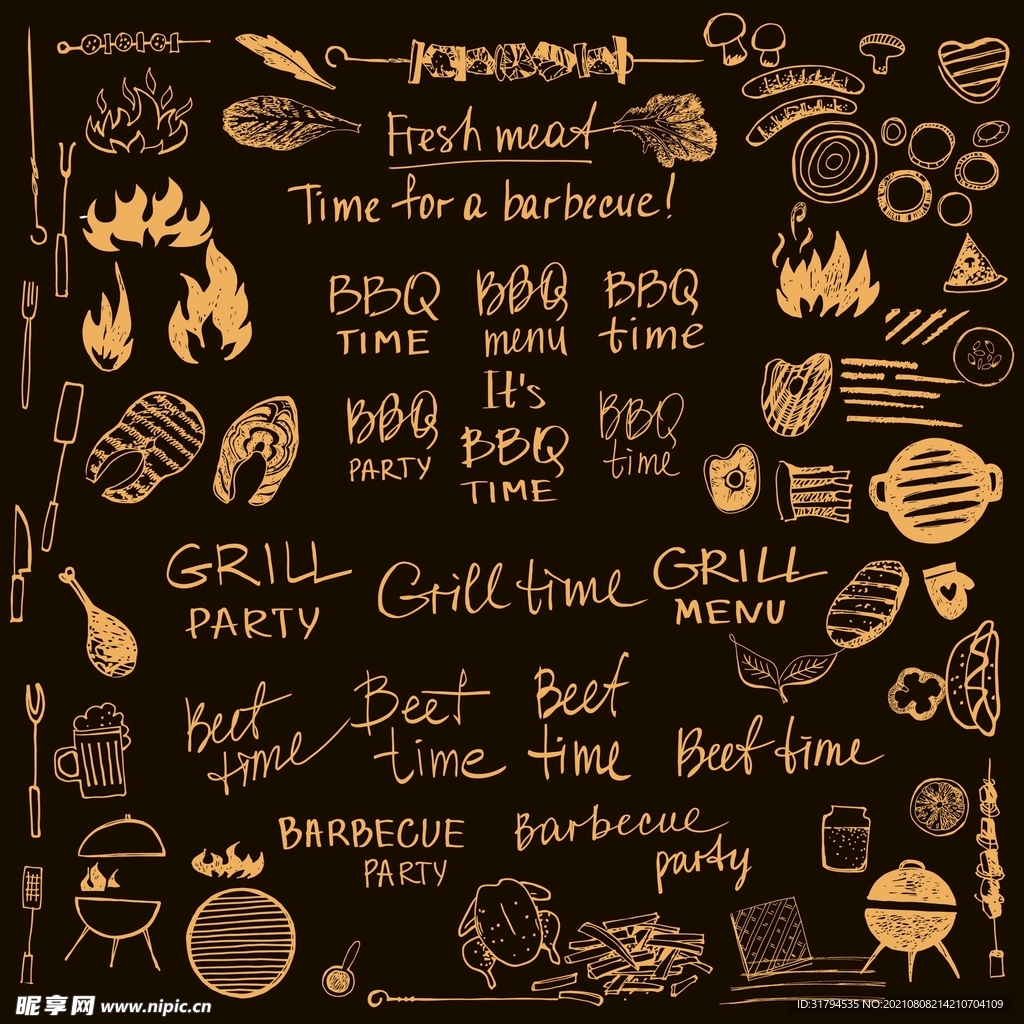 Fresh meat
Time for a barbecue!
BBQ
TIME
BBQ
menu
BBQ
time
BBQ
PARTY
It's
BBQ
TIME
BBQ
time
GRILL
PARTY
Grill time
GRILL
MENU
Beef
time
Beef
time
Beef
time
Beef time
BARBECUE
PARTY
Barbecue
party
昵享网 www.nipic.cn
ID:31794535 NO:20210808214210704109